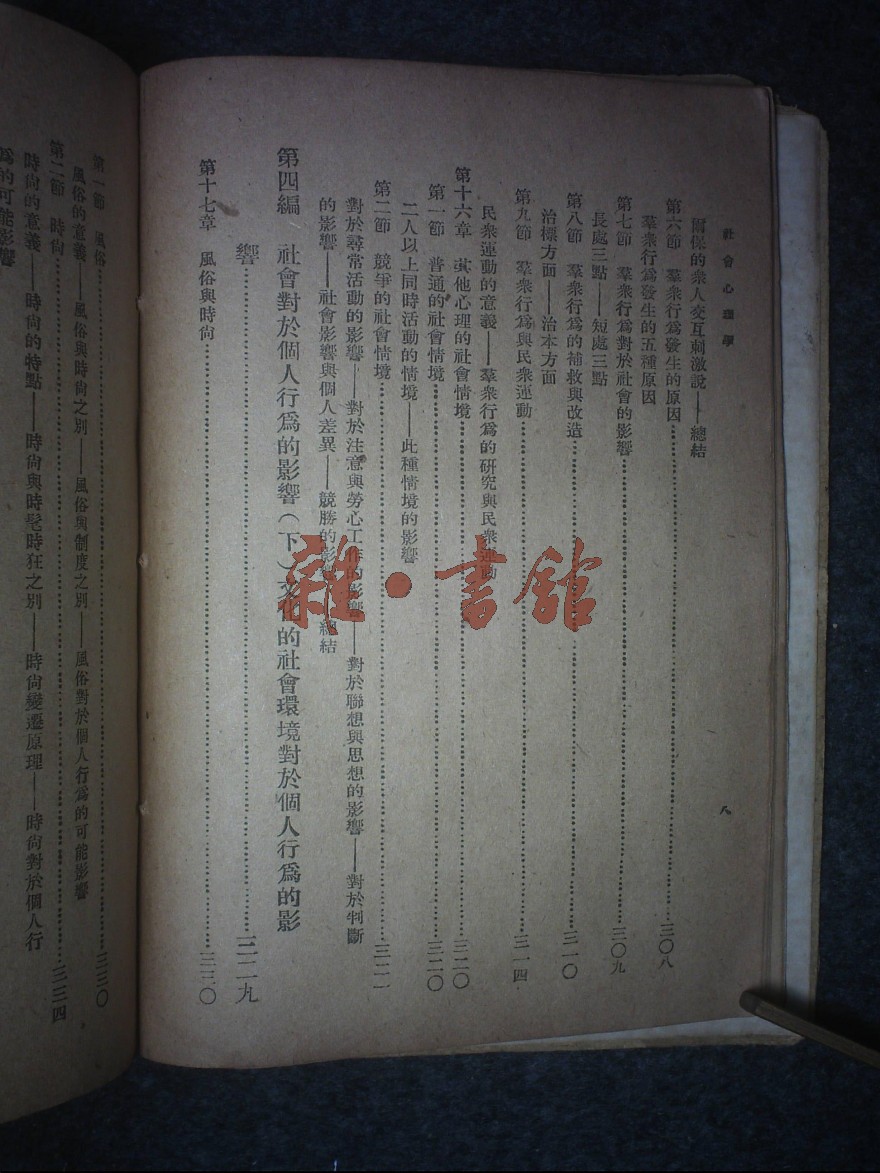 社會心理學
八
爾保的衆人交互刺激說——總結
第六節 羣衆行爲發生的原因……三〇八
羣衆行爲發生的五種原因
第七節 羣衆行爲對於社會的影響……三〇九
長處三點——短處三點
第八節 羣衆行爲的補救與改造……三一〇
治標方面——治本方面
第九節 羣衆行爲與民衆運動……三一四
民衆運動的意義——羣衆行爲的研究與民衆運動
第十六章 其他心理的社會情境……三二〇
第一節 普通的社會情境……三二〇
二人以上同時活動的情境——此種情境的影響
第二節 競爭的社會情境……三二一
對於尋常活動的影響——對於注意與勞心工作的影響——對於聯想與思想的影響——對於判斷
的影響——社會影響與個人差異——競勝的影響——總結
第四編 社會對於個人行爲的影響(下)文化的社會環境對於個人行爲的影
響……三二九
第十七章 風俗與時尙……三三〇
第一節 風俗……三三〇
風俗的意義——風俗與時尙之別——風俗與制度之別——風俗對於個人行爲的可能影響
第二節 時尙……三三四
時尙的意義——時尙的特點——時尙與時髦時狂之別——時尙變遷原理——時尙對於個人行
爲的可能影響
雜·書館